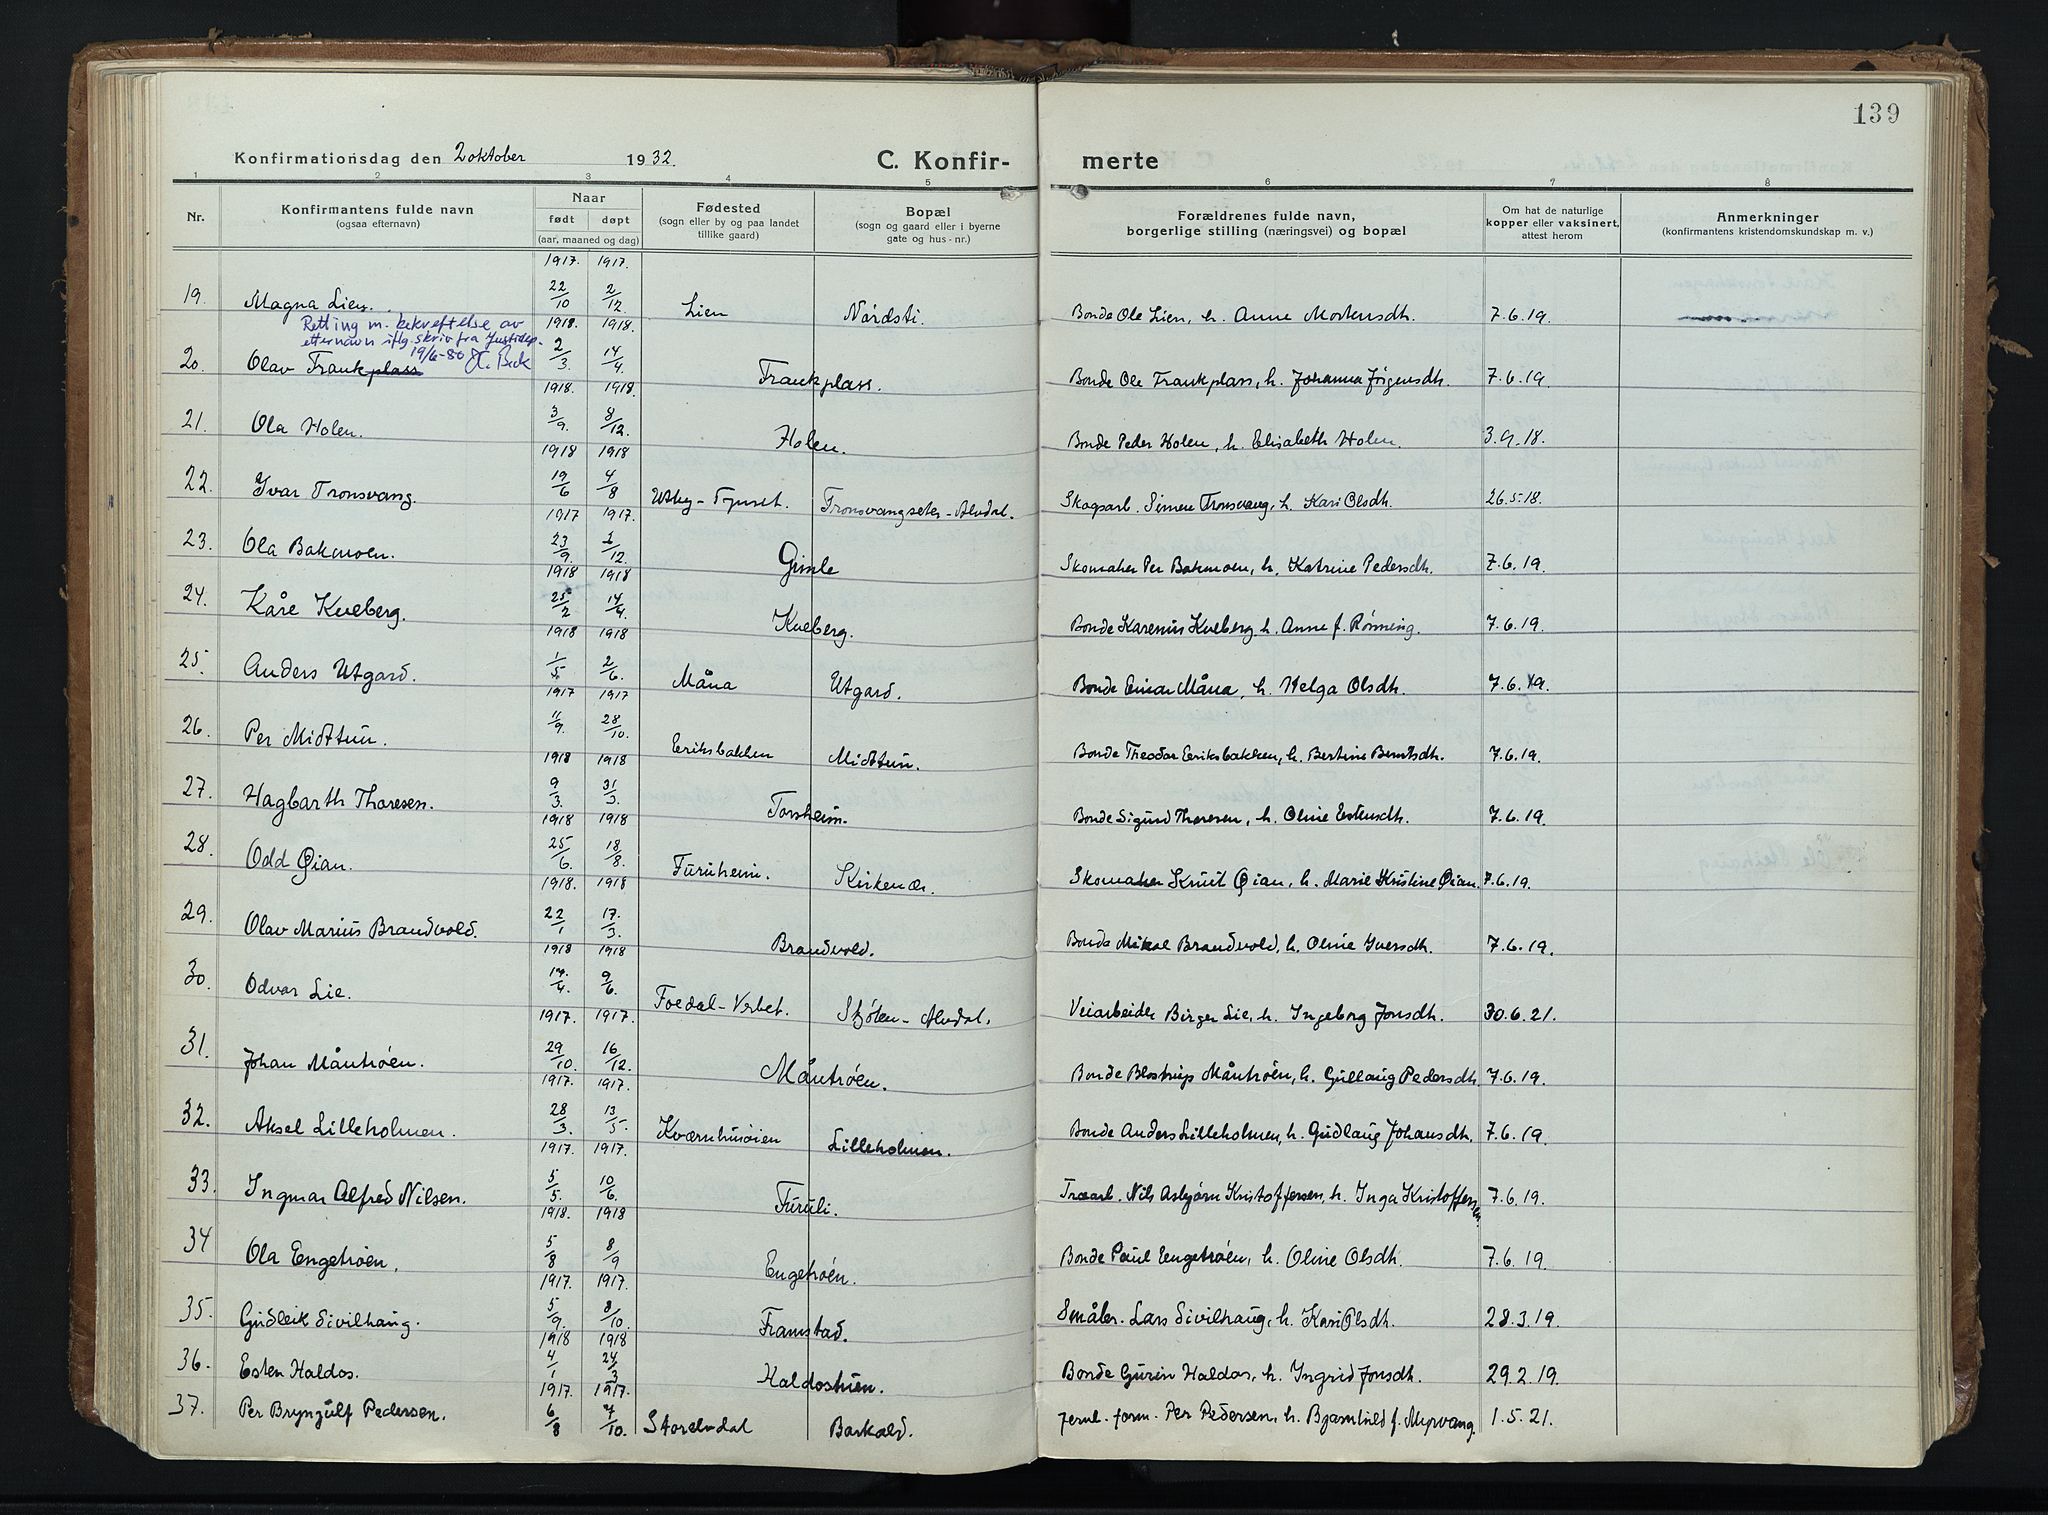 139
Konfirmationsdag den 2 oktober 1932. C. Konfir- merte
1 2 3 4 5 6 7 8
Nr. Konfirmantens fulde navn (ogsaa efternavn) Naar født døpt (aar, maaned og dag) Fødested (sogn eller by og paa landet tillike gaard) Bopæl (sogn og gaard eller i byerne gate og hus-nr.) Forældrenes fulde navn, borgerlige stilling (næringsvei) og bopæl Om hat de naturlige kopper eller vaksinert, attest herom Anmerkninger (konfirmantens kristendomskundskap m. v.)
1917. 1917.
19. Magna Lien. 22/10 2/12 Lien Nordsti. Bonde Ole Lien, h. Anne Mortensdh. 7.6.19.
Retting m. bekreftelse av
etternavn iflg. skriv fra Justisdep.
19/6-80 H. Bek
1918. 1918.
20. Olav Frankplass 2/3. 14/4. Frankplass. Bonde Ole Frankplass, h. Johanna Jørgensdh. 7.6.19.
1918. 1918.
21. Ola Holen. 3/9. 8/12. Holen. Bonde Peder Holen, h. Elisabeth Holen. 3.9.18.
1918 1918
22. Ivar Tronsvang. 19/6 4/8 Utby-Tynset. Tronsvangseter-Alvdal. Skogsarb. Simen Tronsvang, h. Kari Olsdh. 26.5.18.
1917 1917.
23. Ola Bakmoen. 23/9. 2/12. Gimle Skomaker Per Bakmoen, h. Katrine Pedersdh. 7.6.19.
1918 1918
24. Kåre Kveberg. 25/2 14/4. Kveberg. Bonde Karenius Kveberg h. Anne f. Rønning. 7.6.19.
1918 1918
25. Anders Utgard. 1/5 2/6. Måna Utgard. Bonde Einar Måna, h. Helga Olsdh. 7.6.19.
1917 1917
26. Per Midttun. 11/9. 28/10. Eriksbakken Midttun. Bonde Theodor Eriksbakken, h. Bertine Berntsdh. 7.6.19.
1918 1918
27. Hagbarth Thoresen. 9/3. 31/3. Torsheim. Bonde Sigurd Thoresen, h. Oline Estensdh. 7.6.19.
1918 1918
28. Odd Øian. 25/6. 18/8. Furuheim. Kirkenær. Skomaker Knut Øian, h. Marie Kristine Øian. 7.6.19.
1918. 1918
29. Olav Marius Brandvold. 22/1 17./3. Brandvold. Bonde Mikal Brandvold, h. Oline Iversdh. 7.6.19.
1918 1918
30. Odvar Lie. 17./4. 9/6. Foldal-Verket. Stjølen-Alvdal. Veiarbeider Birger Lie, h. Ingeborg Jonsdh. 30.6.21.
1917. 1917.
31. Johan Måntrøen. 29/10. 16/12. Måntrøen. Bonde Blostrup Måntrøen, h. Gullaug Pedersdh. 7.6.19.
1917. 1917.
32. Aksel Lilleholmen. 28/3. 13/5 Kværnhusøien Lilleholmen. Bonde Anders Lilleholmen, h. Gudlaug Johansdh. 7.6.19.
1917. 1917.
33. Ingmar Alfred Nilsen. 5/5. 10/6. Furuli. Træarb. Nils Asbjørn Kristoffersen, h. Inga Kristoffersen. 7.6.19.
1918. 1918
34 Ola Engetrøen. 5/8 8/9 Engetrøen. Bonde Paul Engetrøen, h. Oline Olsdh. 7.6.19.
1917. 1917.
35. Gudleik Sivilhaug. 5/9. 8/10. Framstad. Småbr. Lars Sivilhaug, h. Kari Olsdh. 28.3.19.
1918 1918
36. Esten Haldos. 4/1 24/3 Haldostuen. Bonde Gurin Haldos, h. Ingrid Jonsdh. 29.2.19.
1917. 1917.
37. Per Bryngulf Pedersen. 6/8 7/10. Storelvdal Barkald. Jernb. form. Per Pedersen, h. Bjamhild f. Myrvang. 1.5.21.